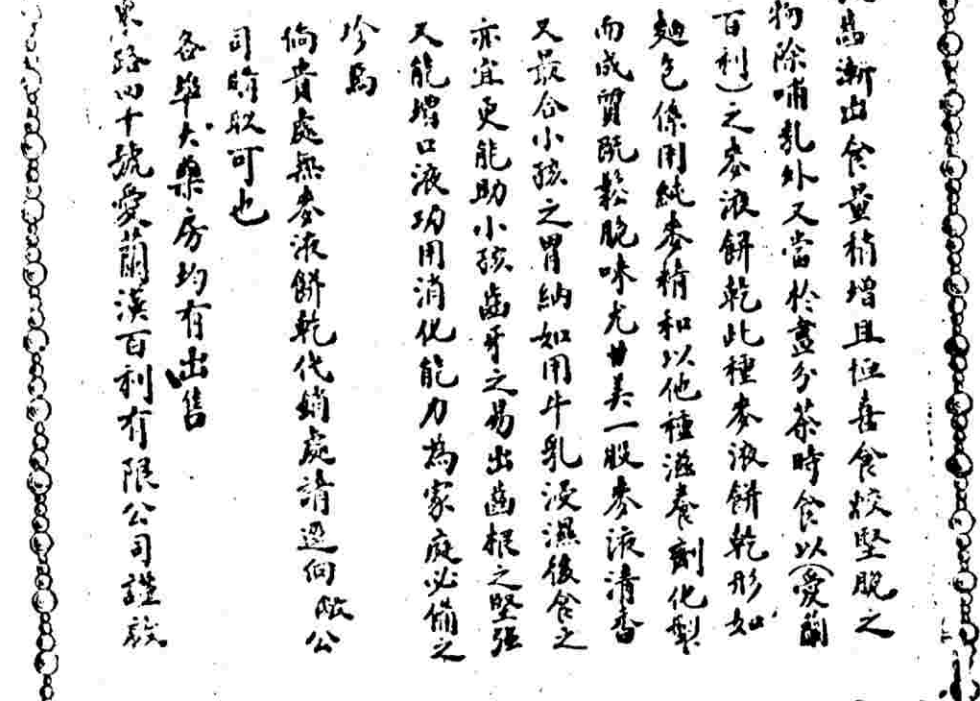 齒漸出食量稍增且恒喜食較堅脆之
物除哺乳外又當於晝分茶時食以(愛蘭
百利)之麥液餅乾此種麥液餅乾形如
麵包係用純麥精和以他種滋養劑化製
而成質既鬆脆味尤甘美一股麥液清香
又最合小孩之胃納如用牛乳浸濕後食之
亦宜更能助小孩齒牙之易出齒根之堅强
又能增口液功用消化能力為家庭必備之
珍焉
倘貴處無麥液餅乾代銷處請逕向敝公
司購取可也
各埠大藥房均有出售
路四十號愛蘭漢百利有限公司謹啟